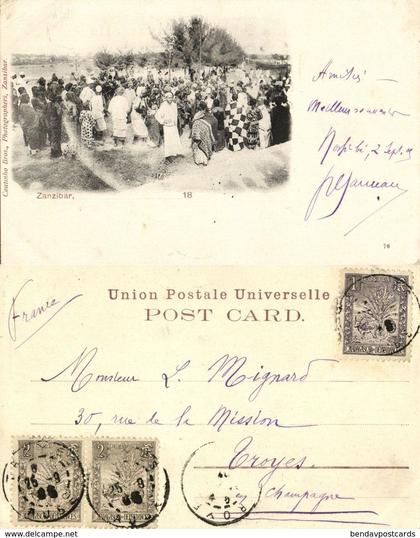 Coutinho Bros., Photographers, Zanzibar.
Zanzibar, 18
Amitiés
Meilleur souvenir
2 Sept.
76
Union Postale Universelle
POST CARD.
France
Monsieur L. Mignard
30, rue de la Mission
Troyes
en Champagne
1
2 2
bendavpostcard.com